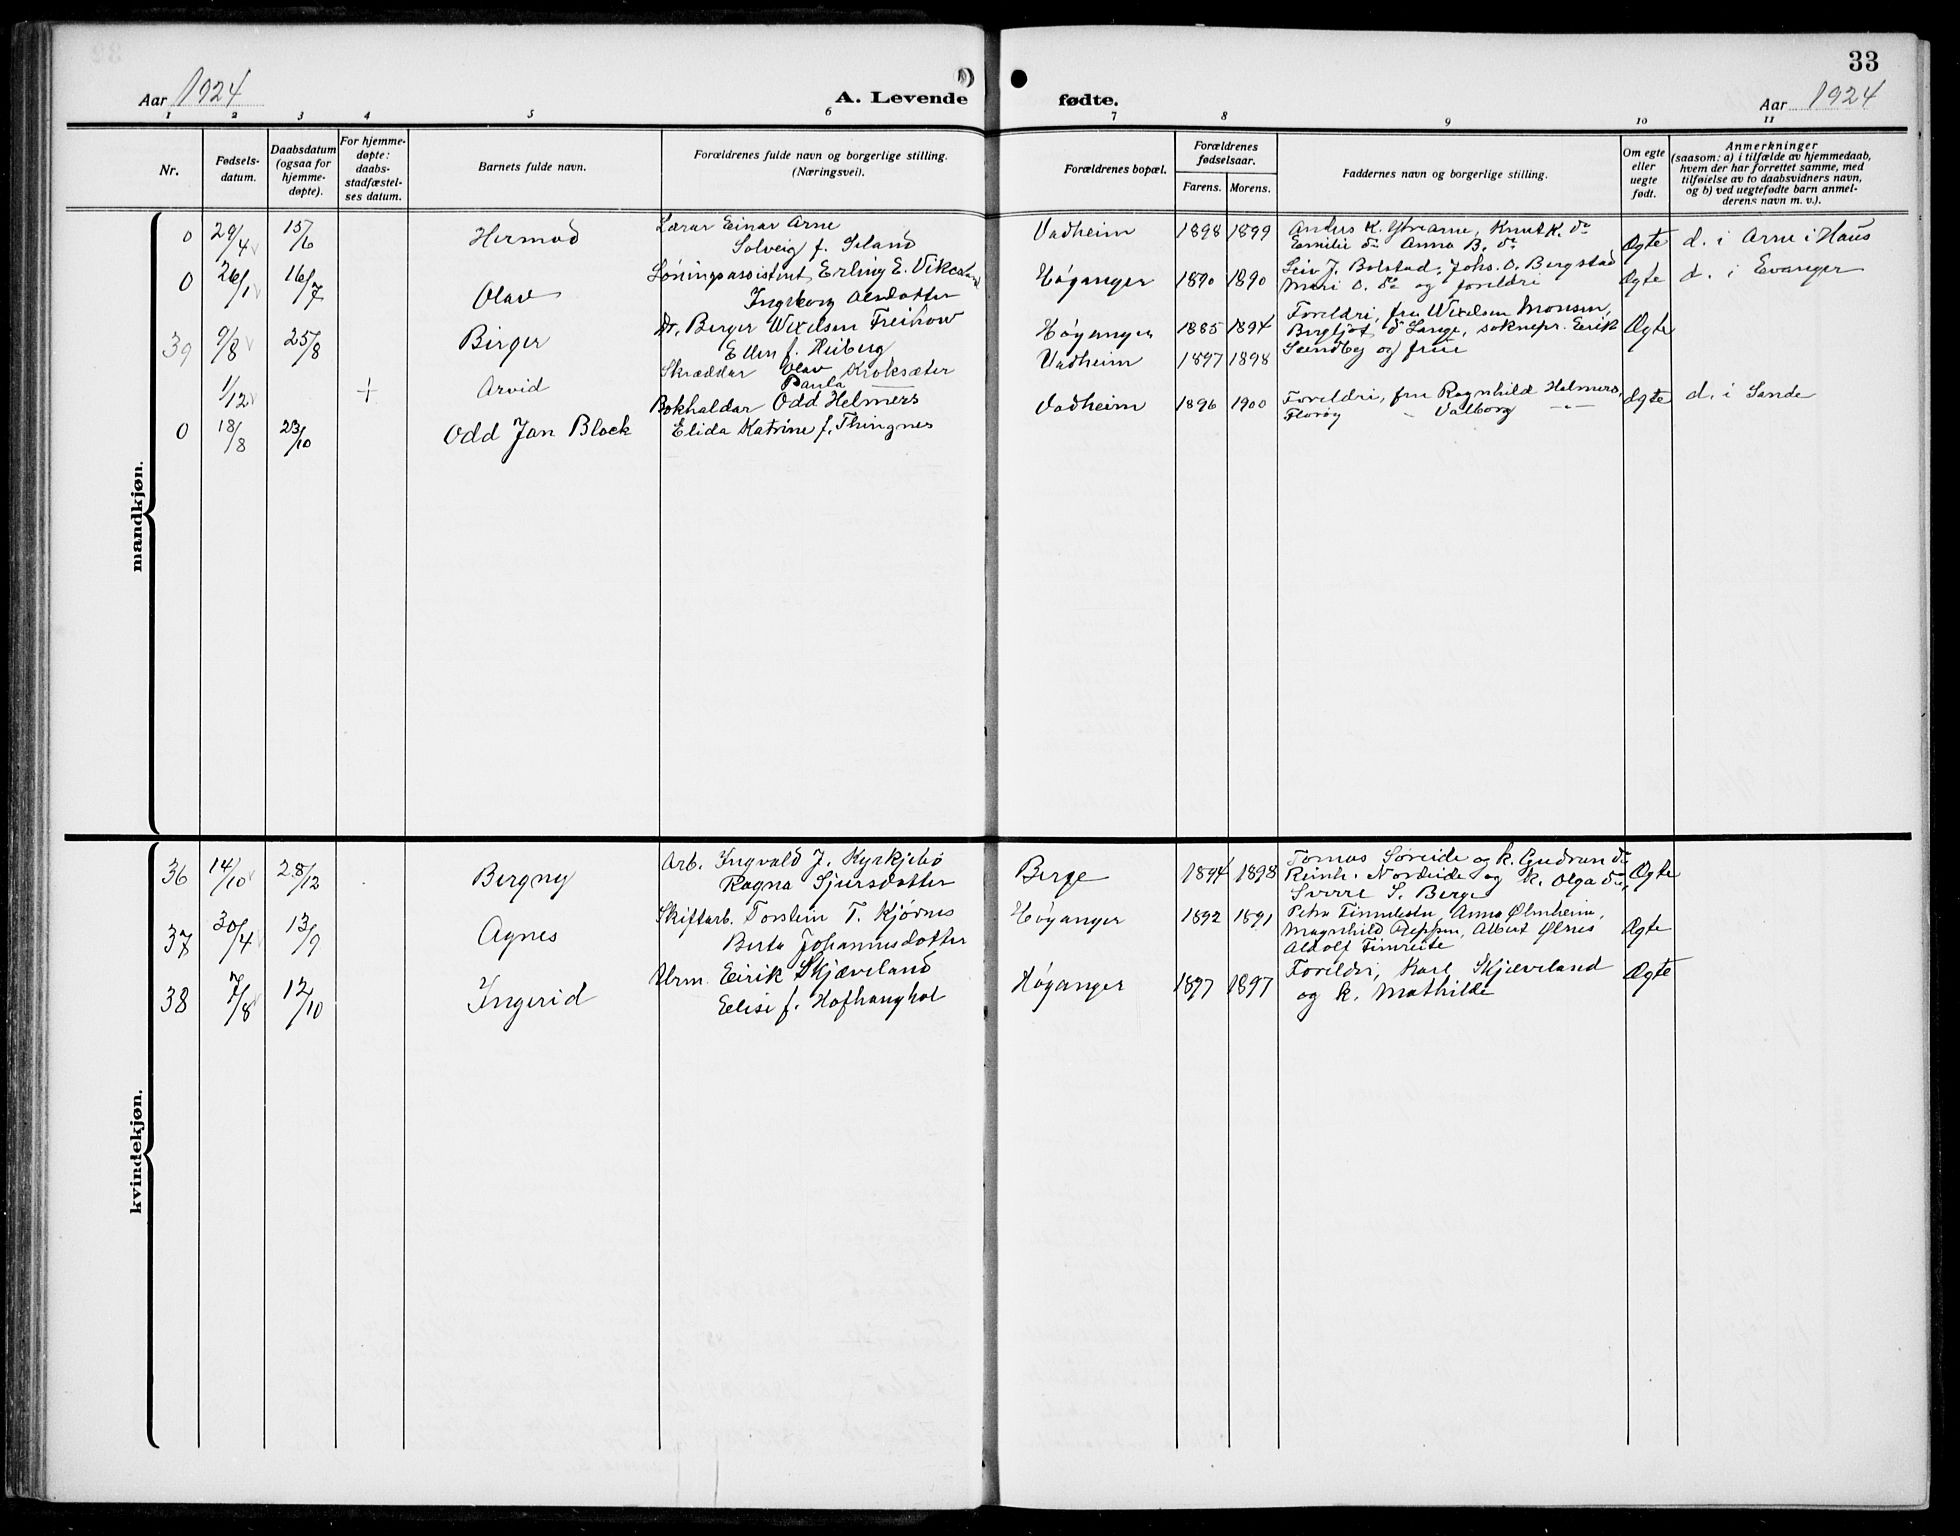 33
Aar 1924
A. Levende
fødte.
Aar 1924
1 2 3 4 5 6 7 8 9 10 11
Nr.
Fødsels-
datum.
Daabsdatum
(ogsaa for
hjemme-
døpte).
For hjemme-
døpte:
daabs-
stadfæstel-
ses datum.
Barnets fulde navn.
Forældrenes fulde navn og borgerlige stilling.
(Næringsvei).
Forældrenes bopæl.
Forældrenes
fødselsaar.
Farens. Morens.
Faddernes navn og borgerlige stilling.
Om egte
eller
uegte
født.
Anmerkninger
(saasom: a) i tilfælde av hjemmedaab,
hvem der har forrettet samme, med
tilføielse av to daabsvidners navn,
og b) ved uegtefødte barn anmel-
derens navn m. v.).
mandkjøn.
0 29/4 15/6 Hermod
Lærar Einar Arne
Solveig f. Seland
Vadheim 1898 1899
Anders K. Ytre Arne, Knut K. do
Emilie do Anna B. do
Ægte d. i Arne i Haus
0 26/1 16/7 Olav
Løningsassistent Erling E. Vikesland
Ingeborg Olsdotter
Høyanger 1890 1890
Leiv J. Bolstad, Johs. O. Bergstad
Mari O. do og foreldre
Ægte d. i Evanger
39 9/8 25/8 Birger
Dr. Berger Wexelsen Freihow
Ellen f. Heiberg
Høyanger 1885 1894
Foreldri, fru Wexelsen Monsen,
Bergljot d Lange, soknepr. Eerik
Sandby og frue
Ægte
1/12 + Arvid
Skræddar Olav Kroksæter
Paula —
Vadheim 1897 1898
0 18/8 23/10 Odd Jan Block
Bokhaldar Odd Helmers
Elida Katrine f. Thingnes
Vadheim 1896 1900
Foreldri, fru Ragnhild Helmers,
Florøy " Valborg "
Ægte d. i Sande
kvindekjøn.
36 14/10 28/12 Bergny
Arb. Ingvald J. Kyrkjebø
Ragna Sjursdotter
Berge 1894 1898
Tomas Søreide og k. Gudrun do
Reinh. Nordeide og k. Olga do,
Sverre S. Berge
Ægte
37 30/4 13/9 Agnes
Skiftarb. Torstein T. Kjørnes
Berta Johannesdotter
Høyanger 1892 1891
Petra Timrelstu, Anna Ølmheim,
Magnhild Reppen, Albert Ølnes
Aldolf Timreite
Ægte
38 7/8 12/10 Ingerid
Urm. Eirik Skjæveland
Eelisi f. Hofhanghol
Høyanger 1897 1897
Foreldri, Karl Skjæveland
og k. Mathilde
Ægte